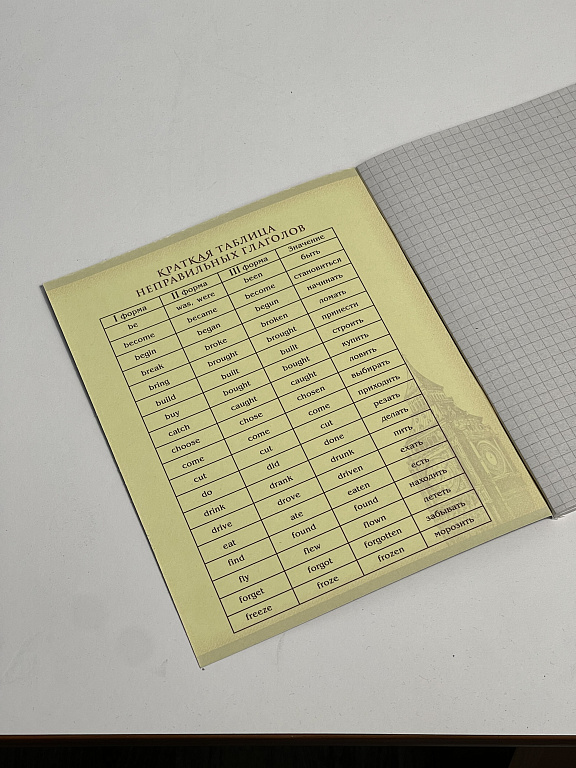 КРАТКАЯ ТАБЛИЦА
НЕПРАВИЛЬНЫХ ГЛАГОЛОВ
I форма II форма III форма Значение
be was, were been быть
become became become становиться
begin began begun начинать
break broke broken ломать
bring brought brought принести
build built built строить
buy bought bought купить
catch caught caught ловить
choose chose chosen выбирать
come come come приходить
cut cut cut резать
do did done делать
drink drank drunk пить
drive drove driven ехать
eat ate eaten есть
find found found находить
fly flew flown лететь
forget forgot forgotten забывать
freeze froze frozen морозить